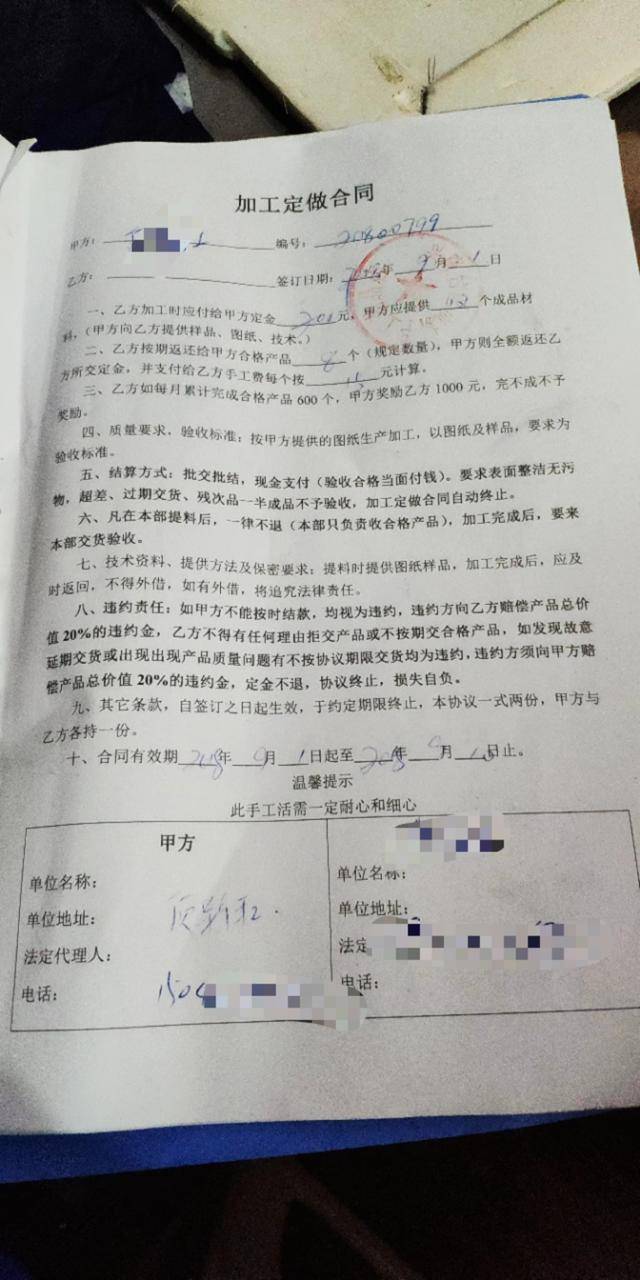 加工定做合同
甲方： 编号：20800799
乙方： 签订日期： 年 9 月 1 日
一、乙方加工时应付给甲方定金 200 元，甲方应提供 个成品材
料，（甲方向乙方提供样品、图纸、技术。）
二、乙方按期返还给甲方合格产品 8 个（规定数量），甲方则全额返还乙
方所交定金，并支付给乙方手工费每个按 元计算。
三、乙方如每月累计完成合格产品 600 个，甲方奖励乙方 1000 元，完不成不予
奖励。
四、质量要求，验收标准：按甲方提供的图纸生产加工，以图纸及样品，要求为
验收标准。
五、结算方式：批交批结，现金支付（验收合格当面付钱）。要求表面整洁无污
物，超差、过期交货、残次品一半成品不予验收，加工定做合同自动终止。
六、凡在本部提料后，一律不退（本部只负责收合格产品），加工完成后，要来
本部交货验收。
七、技术资料、提供方法及保密要求：提料时提供图纸样品，加工完成后，应及
时返回，不得外借，如有外借，将追究法律责任。
八、违约责任：如甲方不能按时结款，均视为违约，违约方向乙方赔偿产品总价
值 20%的违约金，乙方不得有任何理由拒交产品或不按期交合格产品，如发现故意
延期交货或出现出现产品质量问题有不按协议期限交货均为违约，违约方须向甲方赔
偿产品总价值 20%的违约金，定金不退，协议终止，损失自负。
九、其它条款，自签订之日起生效，于约定期限终止，本协议一式两份，甲方与
乙方各持一份。
十、合同有效期 年 9 月 1 日起至 年 9 月 日止。
温馨提示
此手工活需一定耐心和细心
甲方
单位名称：
单位名称：
单位地址：
单位地址：
法定代理人：
法定
电话：150
电话：